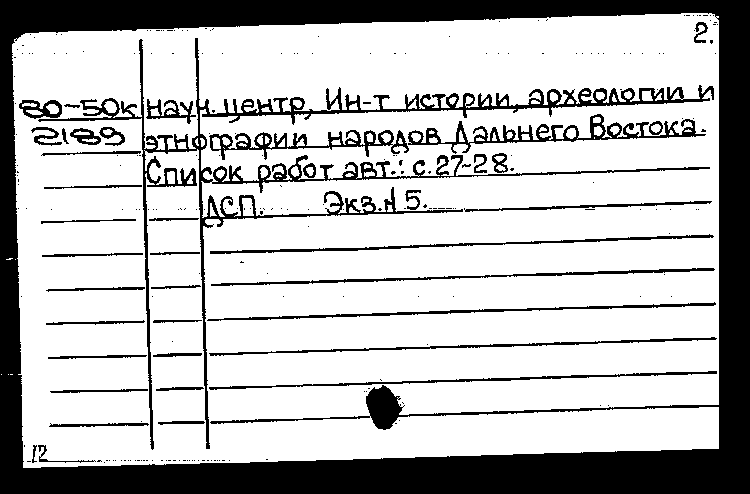 2.
80-50к науч. центр, Ин-т истории, археологии и
2189 этнографии народов Дальнего Востока.
Список работ авт.: с.27-28.
ДСП. Экз.N 5.
12